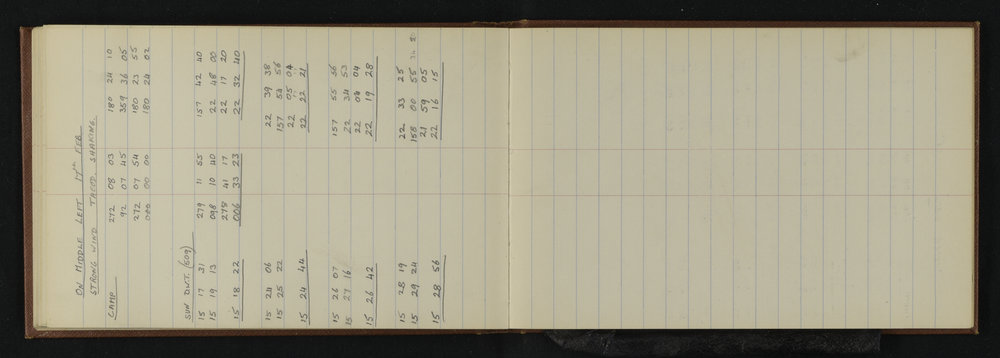 ON MIDDLE LEFT 17th FEB
STRONG WIND SHAKING.
CAMP 272 08 03 180 24 10
92 07 45 359 36 05
272 07 54 180 23 55
000 00 00 180 24 02
SUN (509)
15 17 31 279 11 55 157 42 40
15 19 13 098 10 40 22 48 00
278 41 17 22 17 20
15 18 22 006 33 23 22 32 40
15 24 06 22 39 38
15 25 22 157 54 56
22 05 04
15 24 44 22 22 21
15 26 07 157 55 56
15 27 16 22 34 53
22 04 04
15 26 42 22 19 28
15 28 19 22 33 25
15 29 24 158 00 55
21 59 05
15 28 56 22 16 15